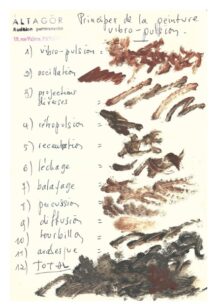 ALTAGOR
Audition permanente
Principes de la peinture
vibro-pulsion.
1) vibro-pulsion =
2) oscillation
3) projections
diverses =
4) rétropulsion =
5)
6) léchage =
7) balayage =
8) percussion =
9) diffusion =
10) tourbillon =
11) arabesque =
12) TOTAL